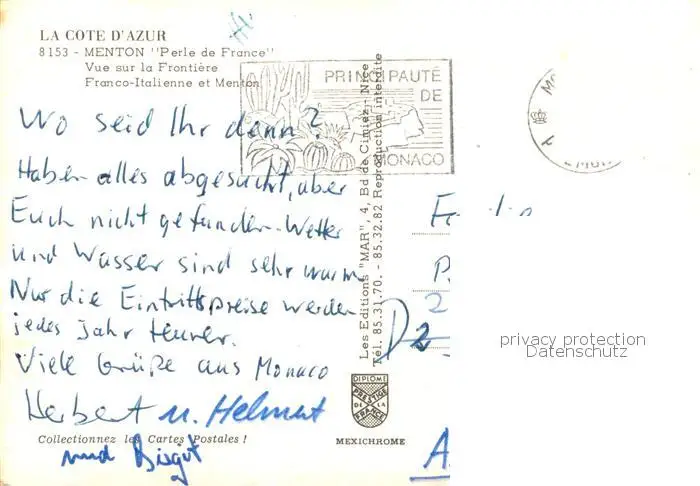 LA COTE D'AZUR
8153 - MENTON "Perle de France"
Vue sur la Frontière
Franco-Italienne et Menton
PRINCIPAUTÉ
DE
MONACO
Wo seid Ihr denn?
Haben alles abgesucht, aber
Euch nicht gefunden. Wetter
und Wasser sind sehr warm
Nur die Eintrittspreise werden
jedes Jahr teurer.
Viele Grüße aus Monaco
Herbert u. Helmut
und Birgit
Collectionnez les Cartes Postales !
Les Editions "MAR", 4, Bd de Cimiez - Nice
Tél. 85.31.70. - 85.32.82 Reproduction interdite
DIPLOME
PRESTIGE
DE LA
FRANCE
MEXICHROME
privacy protection
Datenschutz